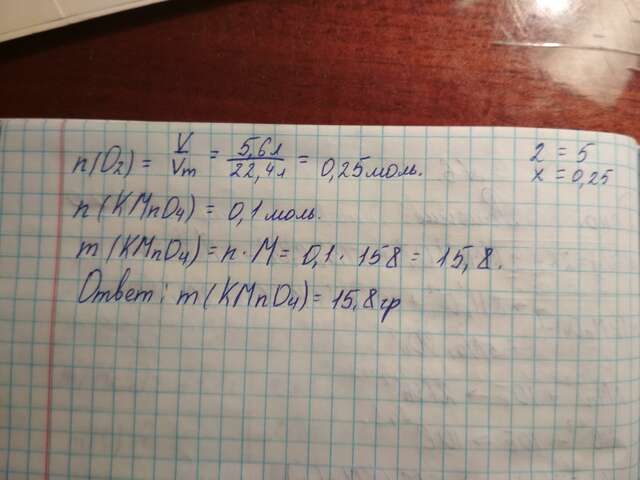 n(O₂) = V/Vm = 5,6л/22,4л = 0,25 моль.
2 = 5
x = 0,25
n(KMnO₄) = 0,1 моль.
m(KMnO₄) = n · M = 0,1 · 158 = 15,8.
Ответ: m(KMnO₄) = 15,8 гр